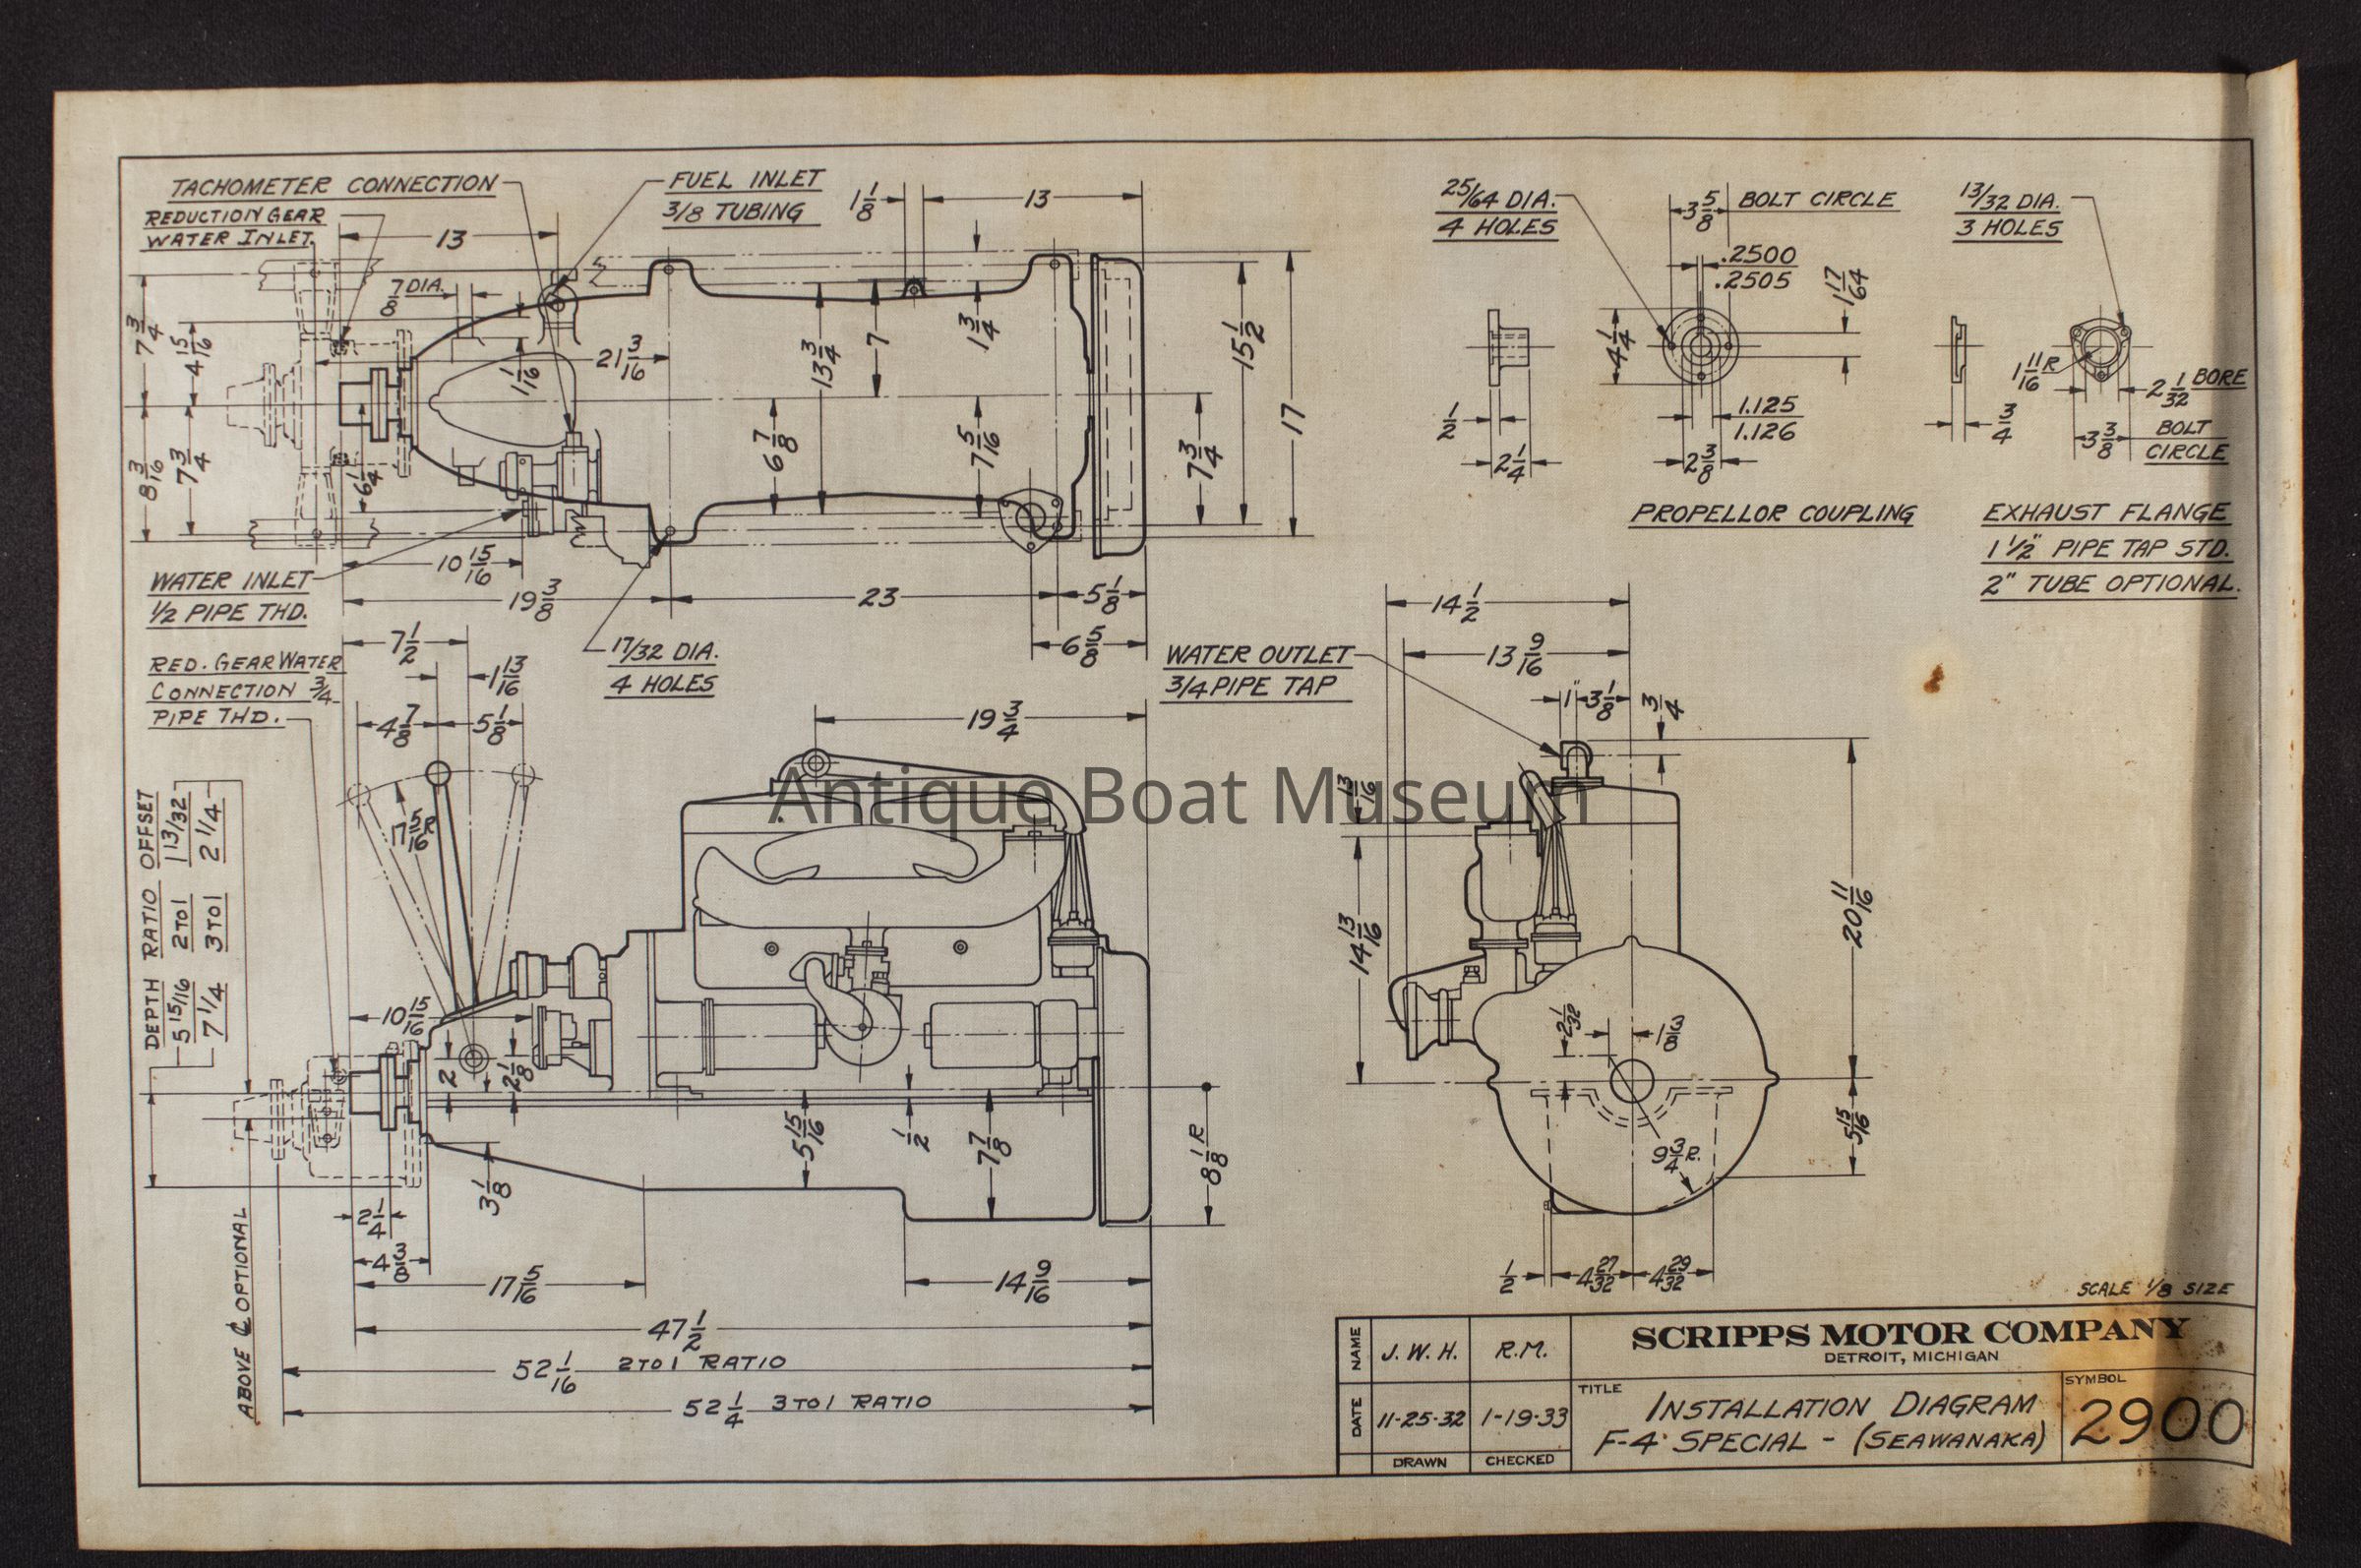 TACHOMETER CONNECTION
REDUCTION GEAR
WATER INLET
13
7/8 DIA.
FUEL INLET
3/8 TUBING
1 1/8
13
7 3/4
4 15/16
8 3/16
7 3/4
6 1/4
1 1/16
21 3/16
13 3/4
7
1 3/4
6 7/8
7 5/16
7 3/4
15 1/2
17
WATER INLET
1/2 PIPE THD.
10 15/16
19 3/8
23
5 1/8
6 5/8
17/32 DIA.
4 HOLES
25/64 DIA.
4 HOLES
3 5/8 BOLT CIRCLE
.2500
.2505
1 17/64
4 1/4
1/2
2 1/4
1.125
1.126
2 3/8
PROPELLOR COUPLING
13/32 DIA.
3 HOLES
1 11/16 R
2 1/32 BORE
3/4
3 3/8 BOLT
CIRCLE
EXHAUST FLANGE
1 1/2" PIPE TAP STD.
2" TUBE OPTIONAL.
RED. GEAR WATER
CONNECTION 3/4
PIPE THD.
7 1/2
1 13/16
4 7/8
5 1/8
7 15/16 R
19 3/4
DEPTH RATIO OFFSET
5 15/16 2 TO 1 1 13/32
7 1/4 3 TO 1 2 1/4
10 15/16
2
2 1/8
5 15/16
1/2
7 7/8
8 1/8 R
3 1/8
2 1/4
4 3/8
17 5/16
14 9/16
47 1/2
52 1/16 2 TO 1 RATIO
52 1/4 3 TO 1 RATIO
ABOVE ℄ OPTIONAL
WATER OUTLET
3/4 PIPE TAP
14 1/2
13 9/16
1"
3 1/8
3/4
13/16
14 13/16
20 11/16
2 1/32
1 3/8
9 3/4 R.
5 15/16
1/2
4 27/32
4 29/32
Antique Boat Museum
SCALE 1/8 SIZE
NAME
J. W. H.
R.M.
DATE
11-25-32
1-19-33
DRAWN
CHECKED
SCRIPPS MOTOR COMPANY
DETROIT, MICHIGAN
TITLE
INSTALLATION DIAGRAM
F-4 SPECIAL - (SEAWANAKA)
SYMBOL
2900